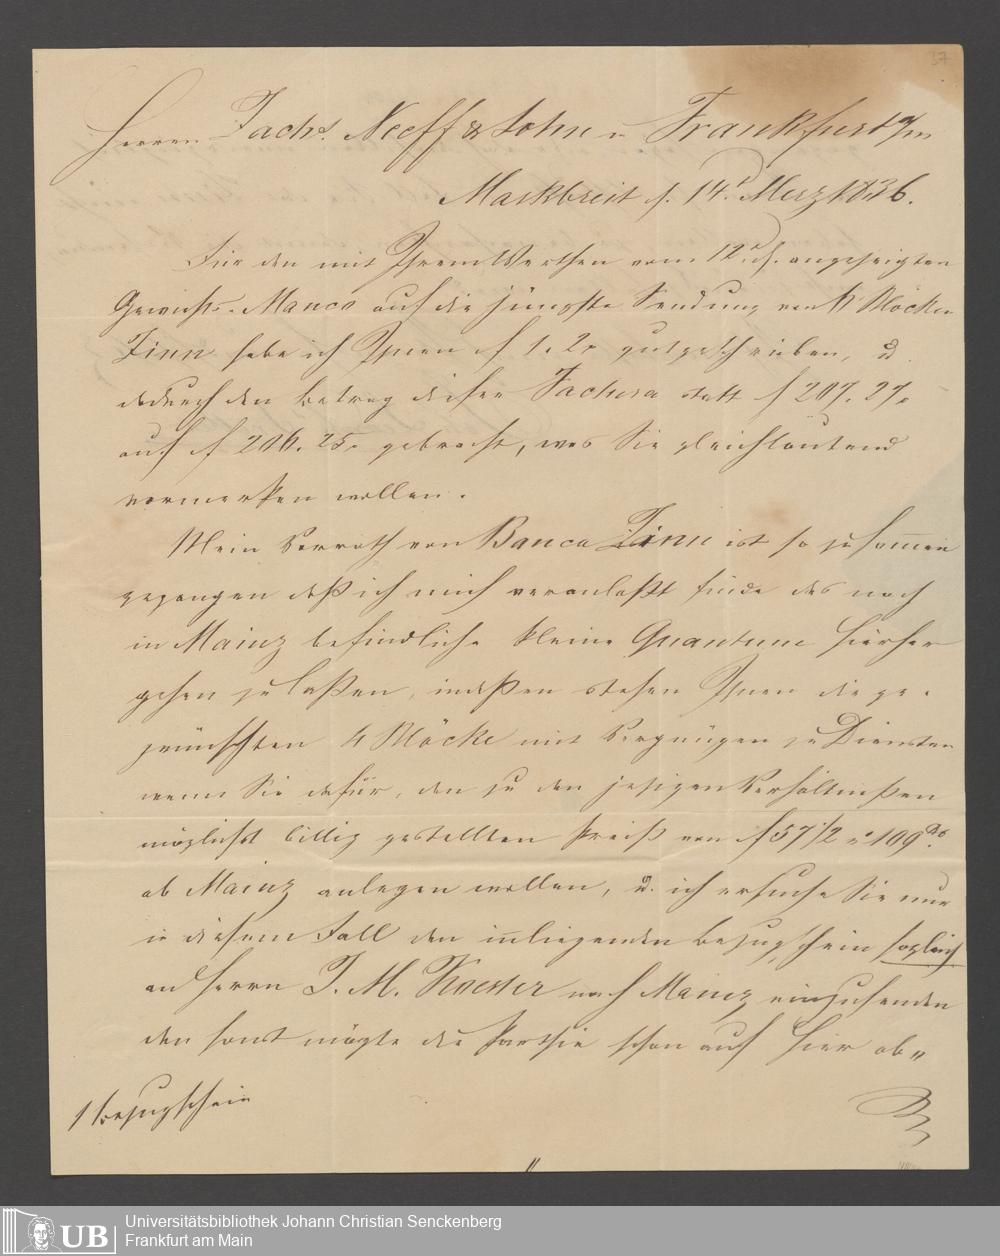 37
Herrn Zach.s Neeff & Sohn in Frankfurt a/m
Marktbreit d. 14.t Merz 1836.
Für den mit Ihrem Werthen vom 12. d. angezeigten
Gewichts-Manco auf die jüngste Sendung von Blöcken
Zinn habe ich Ihnen f 1. 2x gutgeschrieben, u
dadurch den Betrag dieser Factura statt f 207. 27x
auf f 206. 25x gebracht, was Sie gleichlautend
vormerken wollen.
Mein Vorrath von Banca Zinn ist so zusammen
gegangen daß ich mich veranlaßt finde das noch
in Mainz befindliche kleine Quantum hierher
gehen zu laßen, indeßen stehen Ihnen die ge-
wünschten 4 Blöcke mit Vergnügen zu Diensten
wenn Sie dafür, den zu den jetzigen Verhältnißen
möglichst billig gestellten Preiß von f 57 1/2 109
ab Mainz anlegen wollen, u. ich ersuche Sie nur
in diesem Fall den inliegenden Bezugschein sogleich
an Herrn J. M. Koester nach Mainz einzusenden
den sonst mögte die Parthie schon auf hier ab"
1 Bezugschein
Universitätsbibliothek Johann Christian Senckenberg
Frankfurt am Main
UB